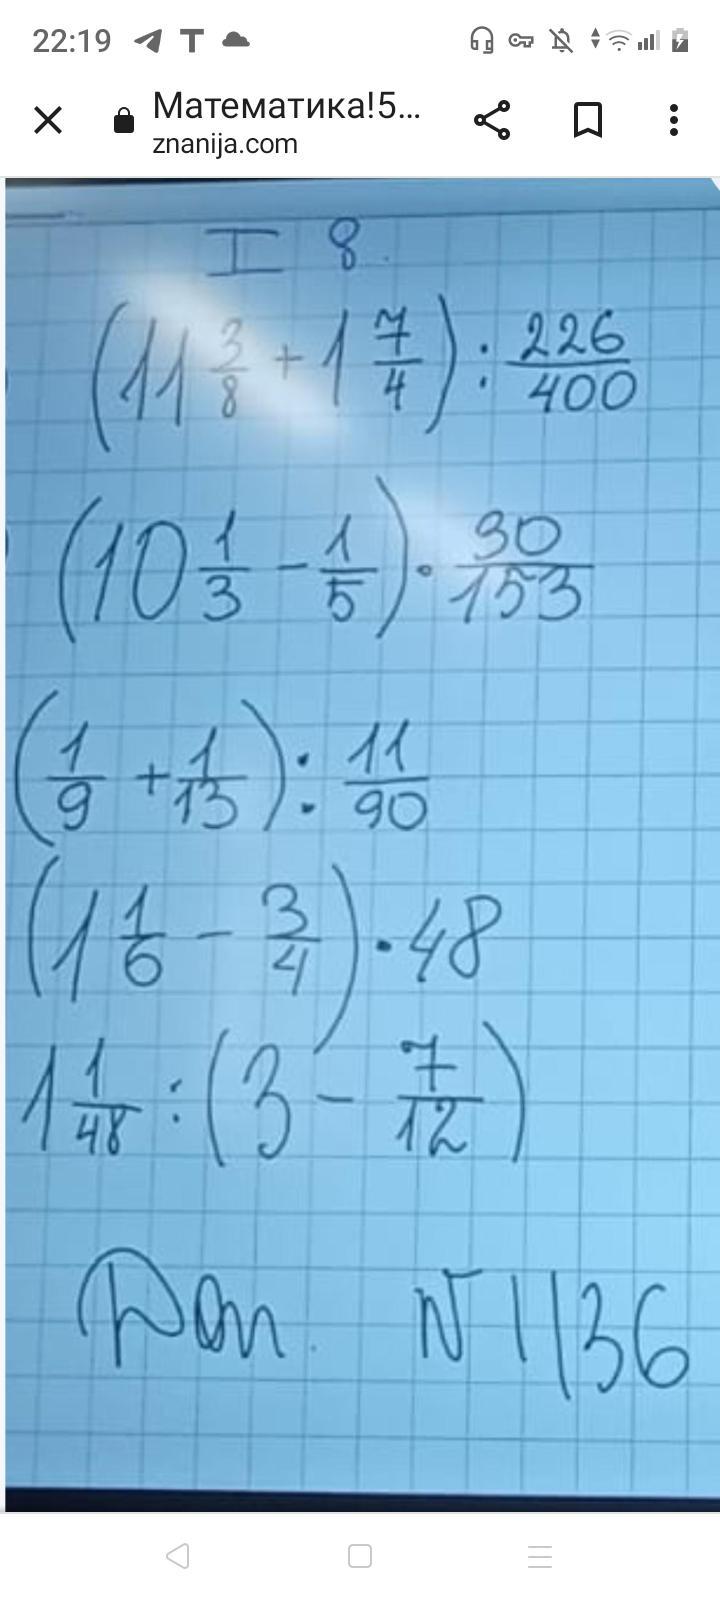 22:19
Математика!5...
znanija.com
I 8.
(11 3/8 + 1 7/4) : 226/400
(10 1/3 - 1/5) · 30/153
(1/9 + 1/13) : 11/90
(1 1/6 - 3/4) · 48
1 1/48 : (3 - 7/12)
Доп. N 1136